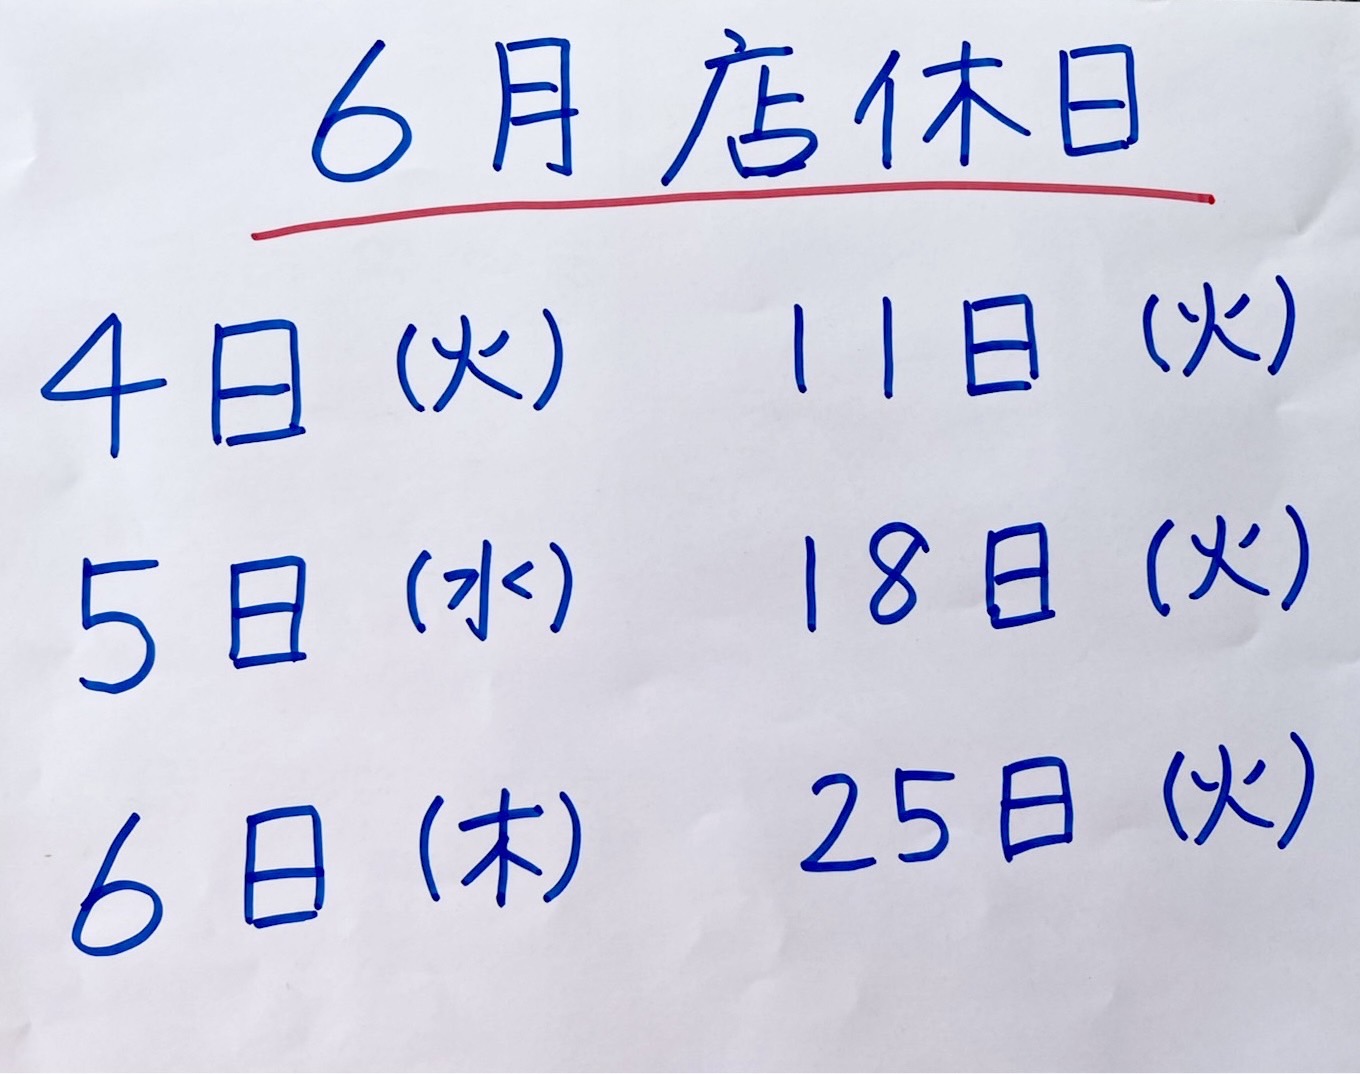 6月 店休日
4日 (火)
5日 (水)
6日 (木)
11日 (火)
18日 (火)
25日 (火)